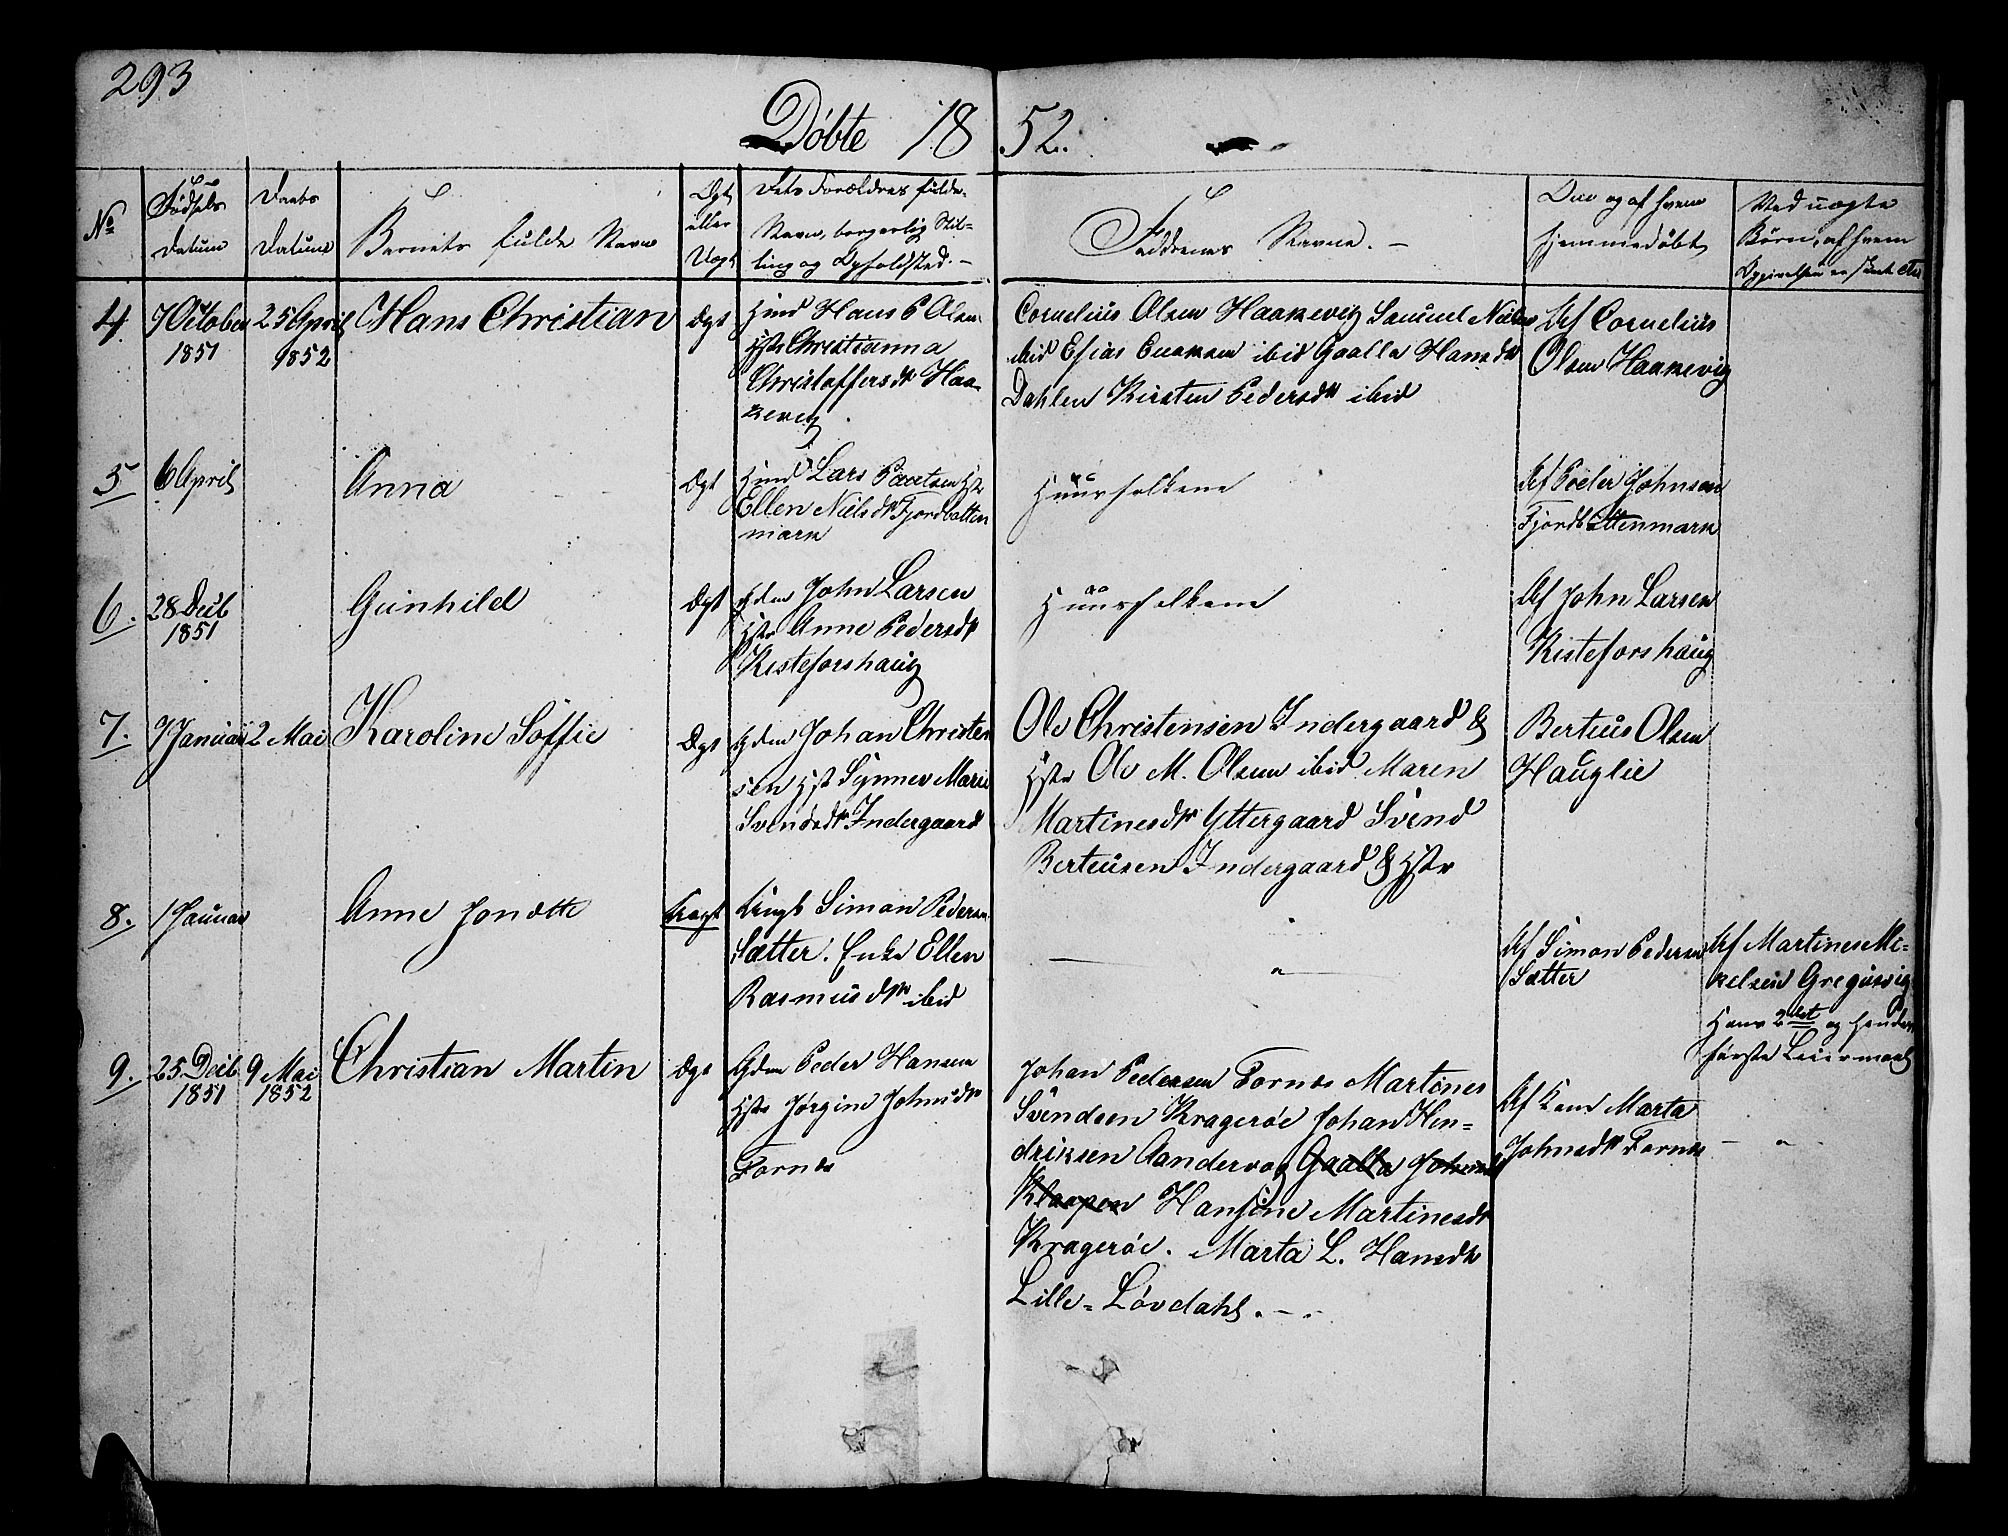 293
Døbte 18 52.
No
Fødsels
Datum
Daabs
Datum
Barnets fulde Navn
Ægt
eller
Uægt
Dets Forældres fulde
Navn, borgerlig Stil=
ling og Opholdsted. -
Faddernes Navne. -
Om og af hvem
hjemmedøbt
Ved uægte
Børn, af hvem
Opgivelsen er skeet etc
4.
7 October
1851
25 April
1852
Hans Christian
Ægt
Hmd Hans P Olsen
Hstr Christianna
Christoffersdtr Haa=
kevig
Cornelius Olsen Haakevig Samuel Nielsen
ibid Esias Enoksen ibid Gaalla Hansdtr
Dahlen Kirsten Pedersdtr ibid
Af Cornelius
Olsen Haakevig
5
6 April
Anna
Ægt
Hmd Lars Hstr
Ellen Nielsdtr Fjordbotten
mark
Huusfolkene
Af Peder Johnsen
Fjordbottenmark
6.
28 Decb
1851
Gunhild
Ægt
Gdm John Larsen
Hstr Anne Pedersdtr
Kisteforshaug
Huusfolkene
Af John Larsen
Kisteforshaug
7.
7 Januar
2 Mai
Karoline Soffie
Ægt
Gdm Johan Christen
sen Hst Synnev Marie
Svendsdtr Indergaard
Ole Christensen Indergaard &
Hstr Ole M. Olsen ibid Maren
Martinesdtr Yttergaard Svend
Berteusen Indergaard & Hstr
Berteus Olsen
Hauglie
8.
1 Januar
Anne Jonette
Uægt
Ungk Simon Peders.
Sætter. Enke Ellen
Rasmusdtr ibid
Af Simon Pedersen
Sætter
Af Martines Mi=
kelsen Gregusvig
Hans 2det og hendes
første Leiermaal
9.
25 Decb
1851
9 Mai
1852
Christian Martin
Ægt
Gdm Peder Hansen
Hstr Jørgine Johnsdtr
Fornes
Johan Pedersen Fornes Martines
Svendsen Kragerøe Johan Hen=
driksen Aandervag Gaalla
Klaapen Hansine Martinesdtr
Kragerøe. Marta L. Hansdtr
Lille=Løvdahl. -.
Af Marta
Johnsdtr Fornes